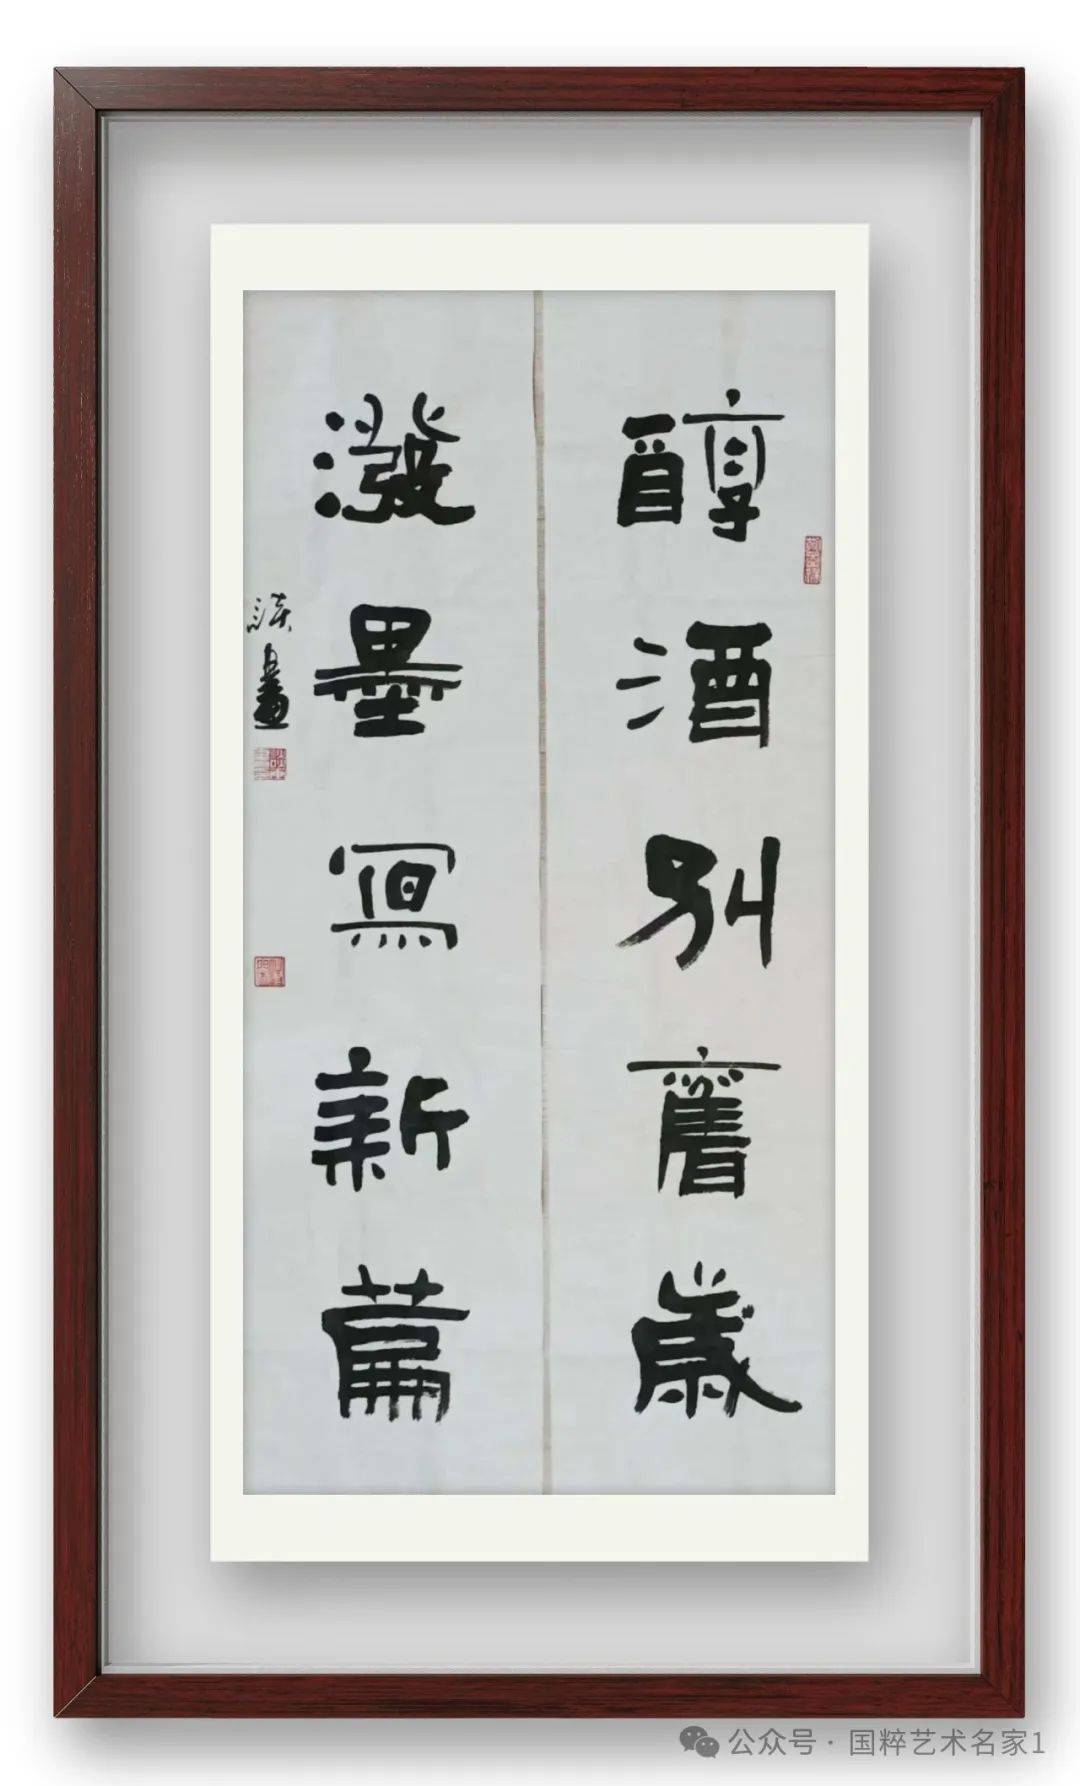 醇酒別舊歲
潑墨寫新篇
公众号 · 国粹艺术名家1